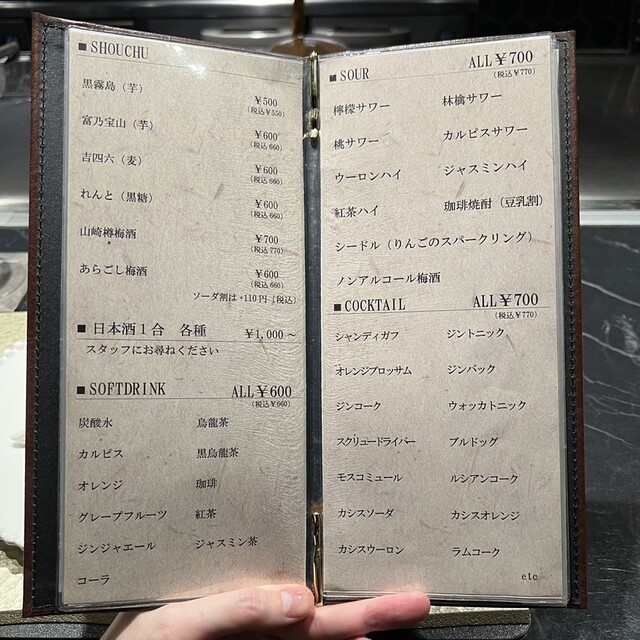 ■ SHOUCHU
黒霧島（芋）
¥500
（税込¥550）
富乃宝山（芋）
¥600
（税込 660）
吉四六（麦）
¥600
（税込 660）
れんと（黒糖）
¥600
（税込 660）
山崎樽梅酒
¥700
（税込 770）
あらごし梅酒
¥600
（税込 660）
ソーダ割は +110円（税込）
■ 日本酒１合 各種 ¥1,000～
スタッフにお尋ねください
■ SOFTDRINK ALL¥600
（税込¥660）
炭酸水 烏龍茶
カルピス 黒烏龍茶
オレンジ 珈琲
グレープフルーツ 紅茶
ジンジャエール ジャスミン茶
コーラ
■ SOUR ALL¥700
（税込¥770）
檸檬サワー 林檎サワー
桃サワー カルピスサワー
ウーロンハイ ジャスミンハイ
紅茶ハイ 珈琲焼酎（豆乳割）
シードル（りんごのスパークリング）
ノンアルコール梅酒
■ COCKTAIL ALL¥700
（税込¥770）
シャンディガフ ジントニック
オレンジブロッサム ジンバック
ジンコーク ウォッカトニック
スクリュードライバー ブルドッグ
モスコミュール ルシアンコーク
カシスソーダ カシスオレンジ
カシスウーロン ラムコーク
etc